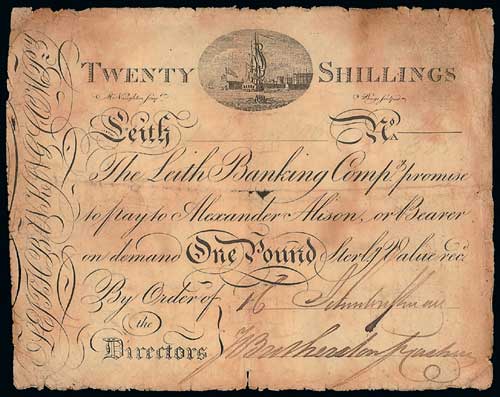 TWENTY SHILLINGS
Leith No.
The Leith Banking Compy. promise
to pay to Alexander Alison, or Bearer
on demand One Pound Sterlg. Value recd.
By Order of
the
Directors
LEITH BANKING COMPY